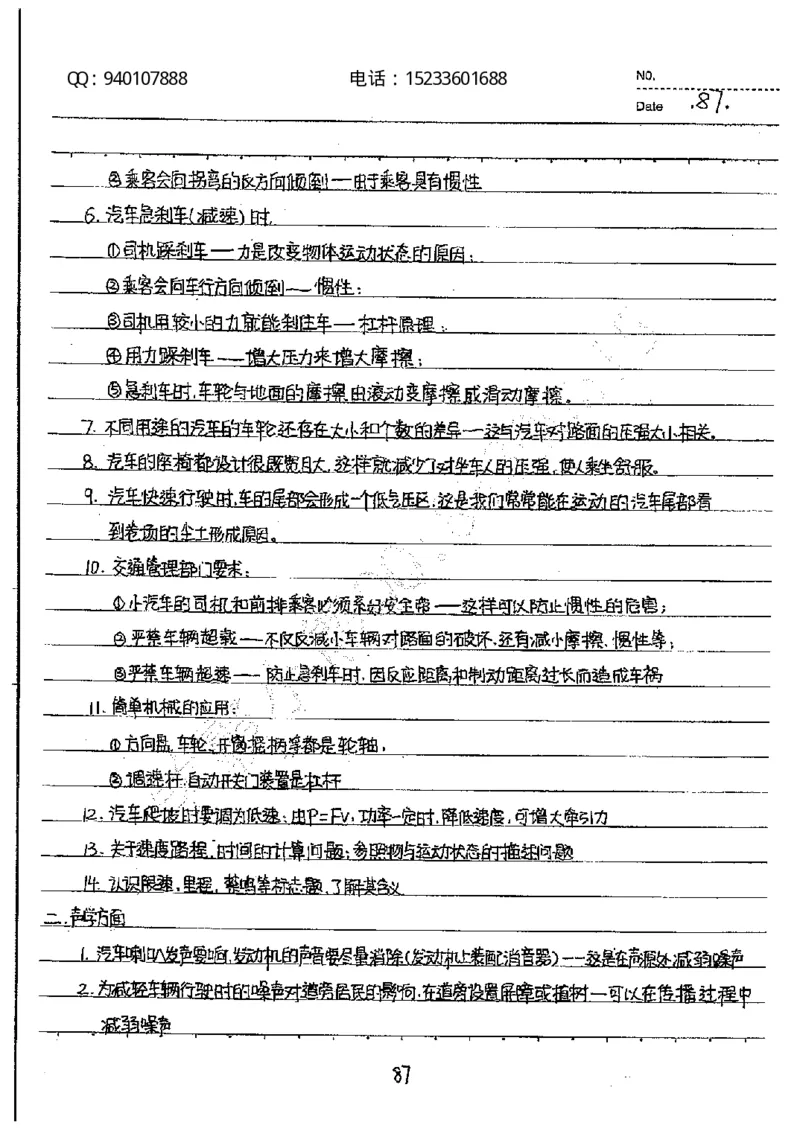 QQ：940107888 电话：15233601688 NO.
Date .87.
②乘客会向拐弯的反方向倾倒——由于乘客具有惯性
6. 汽车急刹车(减速)时.
①司机踩刹车——力是改变物体运动状态的原因；
②乘客会向车行方向倾倒——惯性；
③司机用较小的力就能刹住车——杠杆原理；
④用力踩刹车——增大压力来增大摩擦；
⑤急刹车时,车轮与地面的摩擦由滚动变摩擦成滑动摩擦。
7. 不同用途的汽车的车轮还存在大小和个数的差异——这与汽车对路面的压强大小相关。
8. 汽车的座椅都设计很既宽且大,这样就减少了对坐车人的压强,使人乘坐舒服。
9. 汽车快速行驶时,车的尾部会形成一个低气压区,这是我们常常能在运动的汽车尾部看
到卷扬的尘土形成原因。
10. 交通管理部门要求：
①小汽车的司机和前排乘客必须系好安全带——这样可以防止惯性的危害；
②严禁车辆超载——不仅仅减小车辆对路面的破坏,还有减小摩擦、惯性等；
③严禁车辆超速——防止急刹车时,因反应距离和制动距离过长而造成车祸
11. 简单机械的应用：
①方向盘,车轮、开窗摇柄等都是轮轴,
②调速杆,自动开关门装置是杠杆
12. 汽车爬坡时要调为低速：由P=Fv,功率一定时,降低速度,可增大牵引力
13. 关于速度路程,时间的计算问题；参照物与运动状态的描述问题
14. 认识限速,里程,禁鸣等标志题,了解其含义
二.声学方面
1. 汽车喇叭发声要响,发动机的声音要尽量消除(发动机上装配消音器)——这是在声源处减弱噪声
2. 为减轻车辆行驶时的噪声对道旁居民的影响,在道旁设置屏障或植树—可以在传播过程中
减弱噪声
87